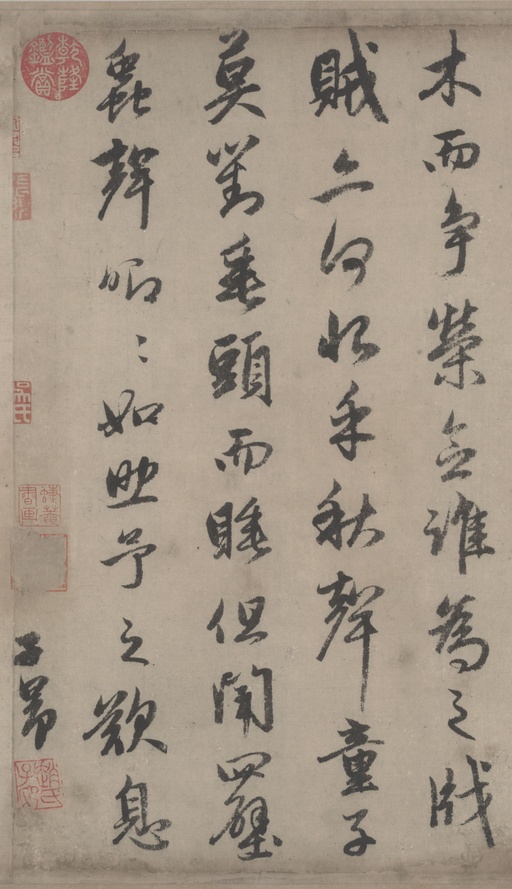 木而争榮念誰為之戕
賊亦何恨乎秋聲童子
莫對垂頭而睡但聞四壁
蟲聲唧〻如助予之歎息
子昂
乾隆鑑賞
趙氏子昂